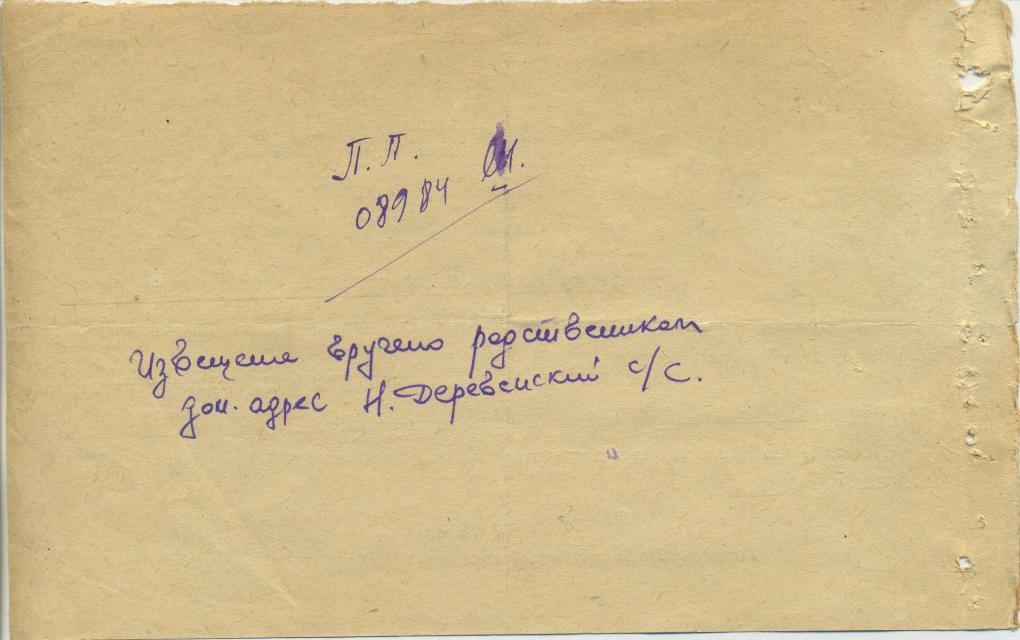 П. П.
08984
Извещение вручено родственикам
дом. адрес Н. Деревенский с/С.